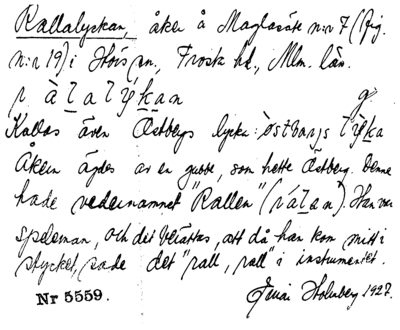 Rallalyckan, åker å Maglasäte n:r 7 (fig.
n:r 19) i Hörs sn., Frosta hd., Mlm. län.
r à l a l ý k a n
Kallas även Östbergs lycka: østbærjs lýka
Åkern ägdes av en gubbe, som hette Östberg. Denne
hade vedernamnet "Rallen" (rálan). Han var
speleman, och det berättas, att då han kom mitt i
stycket, sade det "rall, rall" i instrumentet.
Nr 5559. Holmberg 1927.